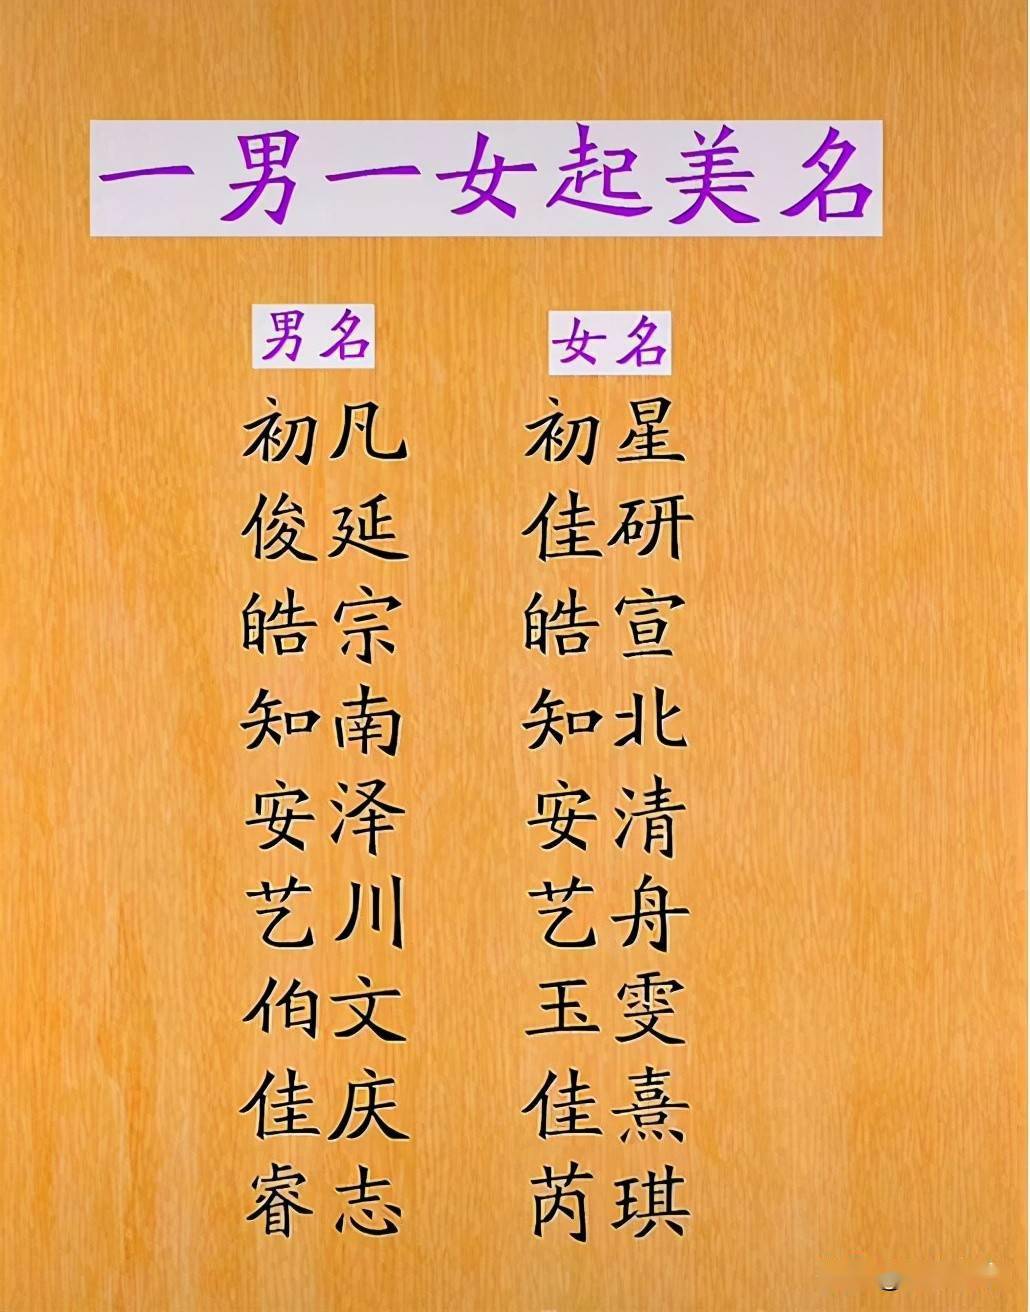 一男一女起美名
男名 女名
初凡 初星
俊延 佳研
皓宗 皓宣
知南 知北
安泽 安清
艺川 艺舟
伯文 玉雯
佳庆 佳熹
睿志 芮琪